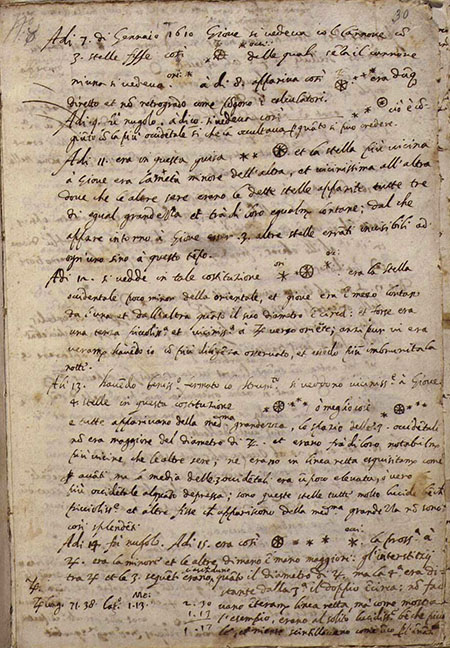 30
Adi 7. di Gennaio 1610 Giove si vedeva col Cannone co
3. stelle fisse così delle quali se\[n]za il cannone
niuna si vedeva. à dì 8. appariva così era dũq
diretto et nõ retrogrado come i calculatori.
Adi 9. fù nugolo. à dì 10. si vedeva così cioè cõ
giũto cõ la più occidẽtale si che la occultava p quãto si può credere.
Adi 11. era in questa guisa et la stella più vicina
à Giove era la metà minore dell'altra, et vicinissima all'altra
dove che le altre sere erano le dette stelle apparite tutte tre
di equal grandezza et trà di loro equalmẽ lontane; dal che
appare intorno à Giove esser .3. altre stelle errãti invisibili ad
ogn'uno sino à questo tẽpo.
Adi 12. si vedde in tale costituzione era la stella
occidentale poco minor della orientale, et giove era ĩ mezo lontano
da l'una et da l'altra quãto il suo diametro ĩ circa: et forse era
una terza piccoliss.ᵃ et viciniss.ᵃ à ♃ verso oriẽte; anzi pur vi era
veramẽ havẽdo io cõ più diligẽza osservato, et essẽdo più imbrunita la
notte.
Adi 13. havẽdo beniss.º fermato lo strumẽ.º si veddono vicinissᵉ à Giove
4. stelle in questa costituzione ò meglio così
e tutte apparivano della medᵐᵃ grandezza, lo spazio delle .3. occidẽtali
nõ era maggiore del diametro di ♃. et erano frà di loro notabilmẽ
più vicine, che le altre sere; ne erano in linea retta esquisitamẽ come
p avãti ma la media delle 3 occidẽtali era ũ poco elevata, o vero
la più occidẽtale alquãto depressa; sono queste stelle tutte molto lucide bẽche
piccioliss.ᵉ et altre fisse che appariscono della medᵐᵃ grãdezza nõ sono
così splendẽti.
Adi 14. fù nugolo. Adi 15. era così la pross.ᵃ à
♃. era la minore et le altre di mano ĩ mano maggiori: gl'interstizij
trà ♃ et le 3. seguẽti erano, quãto il diametro di ♃. ma la 4.ᵃ era di-
stante dalla 3.ᵃ il doppio ĩ circa; nõ fa
cevano interamẽ linea retta ma come mostra
l'esempio, erano al solito lucidiss.ᵉ bẽche picco
le, et niente scintillavano come anco
♃ long. 71.38 lat. 1.13.
1.17